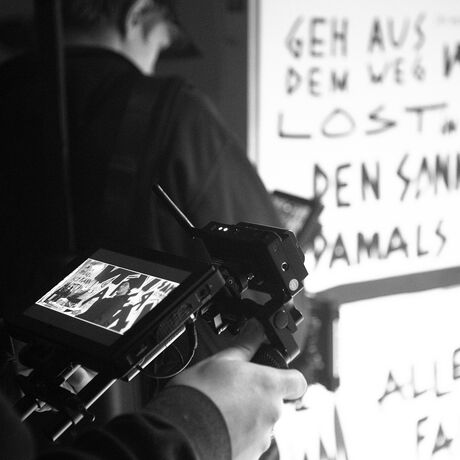 GEH AUS
DEN WEG
LOST
DEN SAN
DAMALS
ALLE
FA